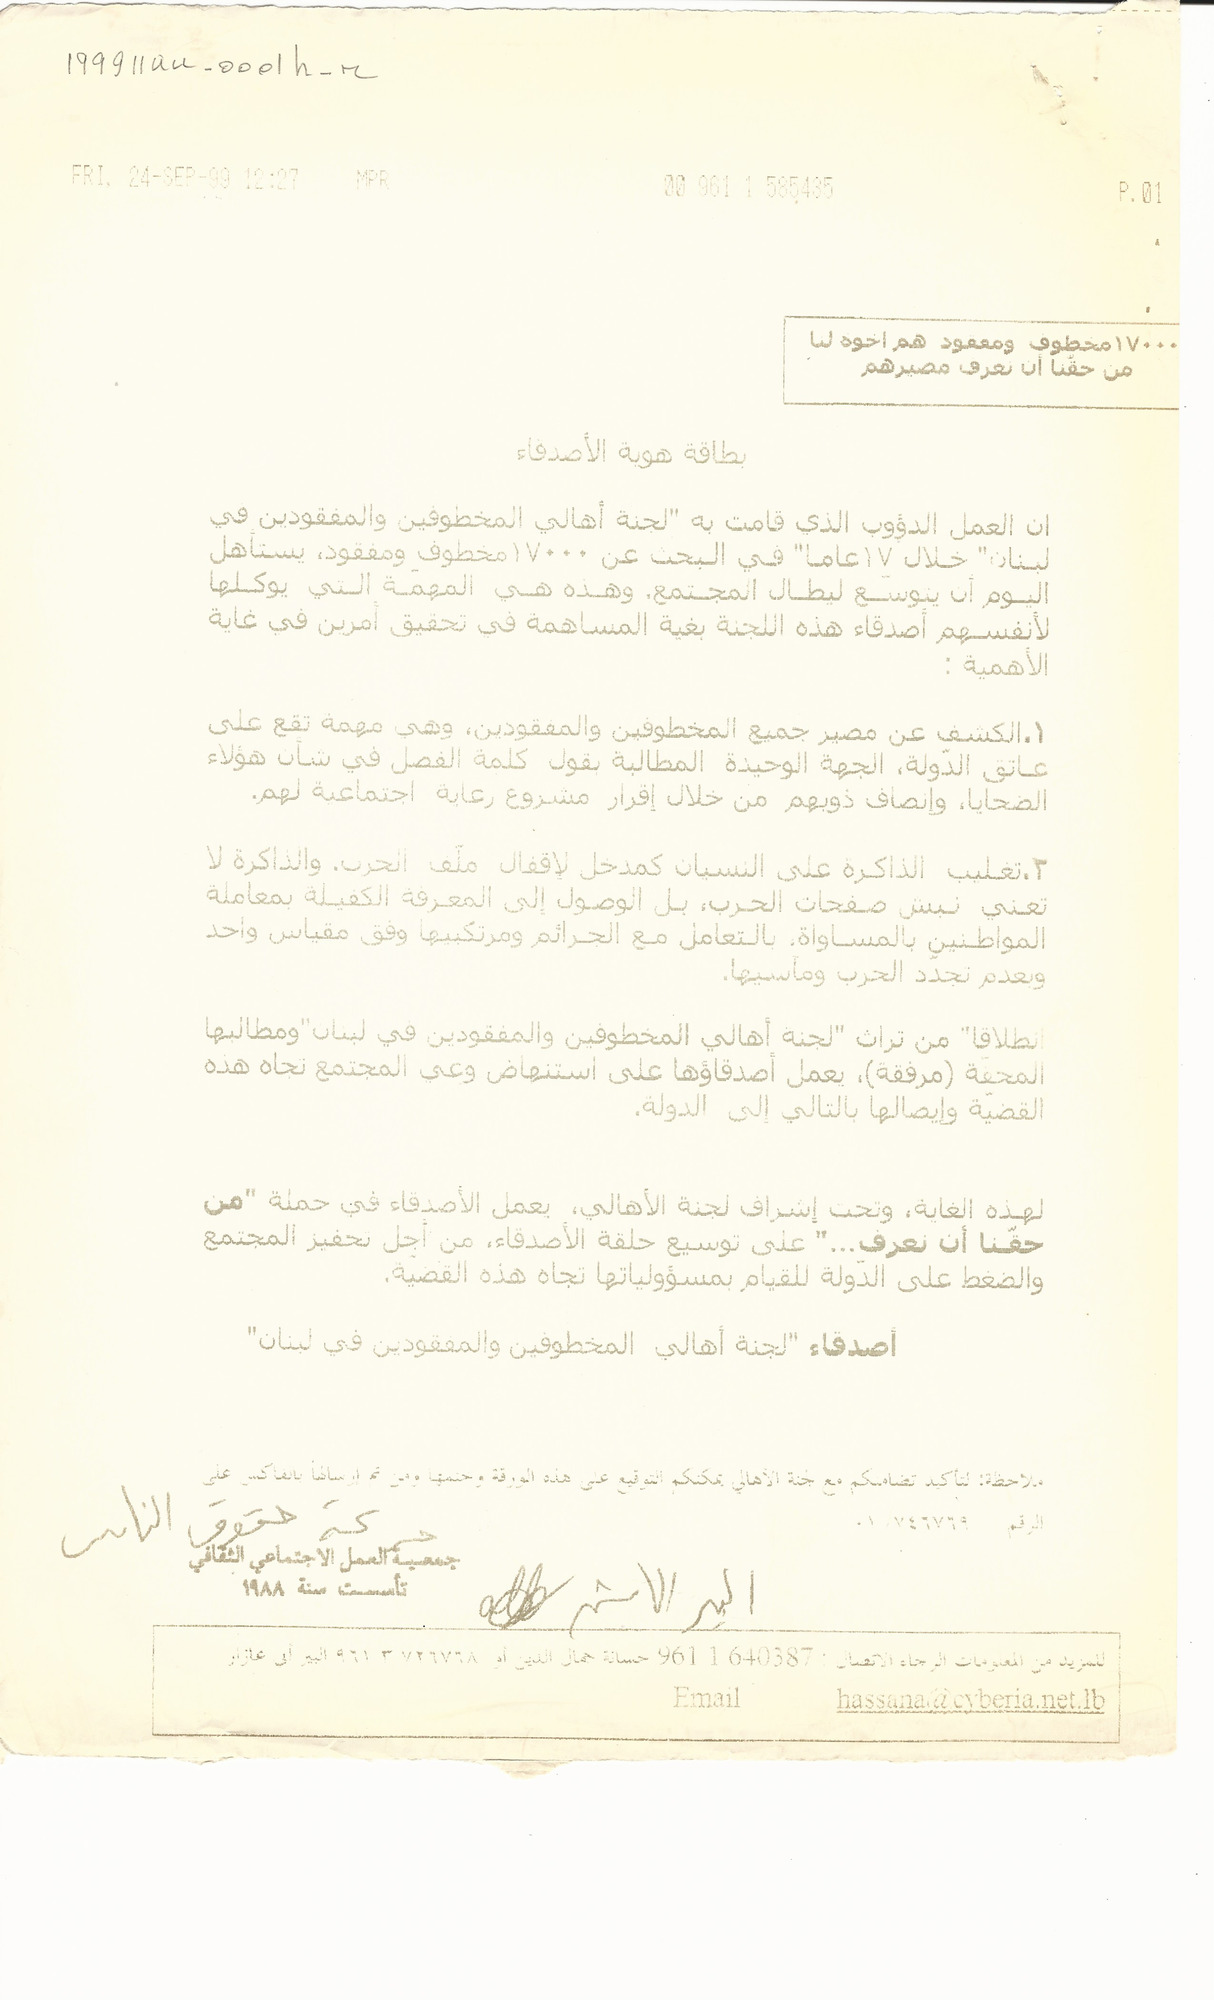 FRI. 24-SEP-99 12:27 MPR 00 961 1 585485 P.01
١٧٠٠٠مخطوف ومفقود هم اخوة لنا
من حقّنا أن نعرف مصيرهم
بطاقة هوية الأصدقاء
ان العمل الدؤوب الذي قامت به "لجنة أهالي المخطوفين والمفقودين في
لبنان" خلال ١٧عاما" في البحث عن ١٧٠٠٠مخطوف ومفقود، يستأهل
اليوم أن يتوسّع ليطال المجتمع. وهذه هي المهمّة التي يوكلها
لأنفسهم أصدقاء هذه اللجنة بغية المساهمة في تحقيق أمرين في غاية
الأهمية :
١.الكشف عن مصير جميع المخطوفين والمفقودين، وهي مهمة تقع على
عاتق الدّولة، الجهة الوحيدة المطالبة بقول كلمة الفصل في شأن هؤلاء
الضحايا، وإنصاف ذويهم من خلال إقرار مشروع رعاية اجتماعية لهم.
٢.تغليب الذاكرة على النسيان كمدخل لإقفال ملّف الحرب. والذاكرة لا
تعني نبش صفحات الحرب، بل الوصول إلى المعرفة الكفيلة بمعاملة
المواطنين بالمساواة، بالتعامل مع الجرائم ومرتكبيها وفق مقياس واحد
وبعدم تجدّد الحرب ومآسيها.
انطلاقا" من تراث "لجنة أهالي المخطوفين والمفقودين في لبنان"ومطالبها
المحقّة (مرفقة)، يعمل أصدقاؤها على استنهاض وعي المجتمع تجاه هذه
القضيّة وإيصالها بالتالي إلى الدولة.
لهذه الغاية، وتحت إشراف لجنة الأهالي، يعمل الأصدقاء في حملة "من
حقّنا أن نعرف..." على توسيع حلقة الأصدقاء، من أجل تحفيز المجتمع
والضغط على الدّولة للقيام بمسؤولياتها تجاه هذه القضيّة.
أصدقاء "لجنة أهالي المخطوفين والمفقودين في لبنان"
ملاحظة: لتأكيد تضامنكم مع لجنة الأهالي يمكنكم التوقيع على هذه الورقة وختمها ومن ثم إرسالها بالفاكس على
الرقم ٠١٠٧٤٦٧٦٩
حركة حقوق الناس
جمعية العمل الاجتماعي الثقافي
تأسست سنة ١٩٨٨
للمزيد من المعلومات الرجاء الاتصال : 961 1 640387 حسانة جمال الدين أو ٩٦١ ٣ ٧٢٦٧٦٨ البير أبي عازار
Email hassana@cyberia.net.lb